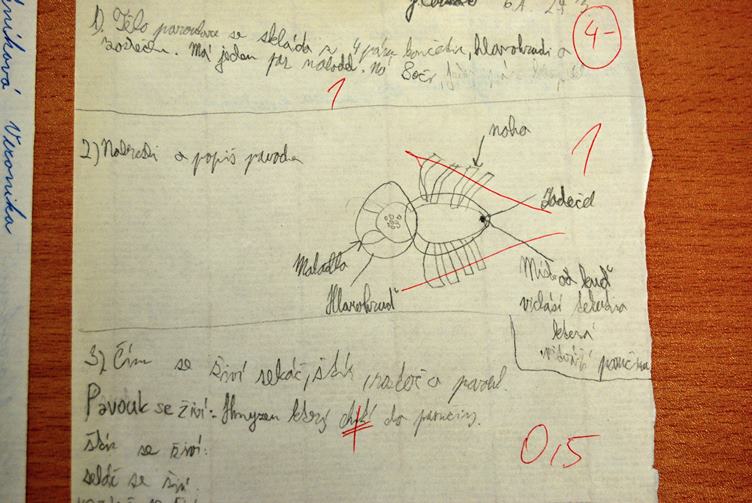 6A 24
4-
1) Tělo pavoukovce se skládá z 4 párů končetin, hlavohrudi a
zadečku. Má jeden pár makadel. Má 8 očí,
1
2) Nakresli a popiš pavouka
1
noha
Zadeček
Makadla
Hlavohruď
Místo od kuď
vichází tekutina
která
vitváří pavučinu
3) Čím se živí sekáč, štír, a pavouk.
Pavouk se živí: Hmyzem který chití do pavučiny.
štír se živí:
sekáč se živí
se živí
0,5
níková Veronika